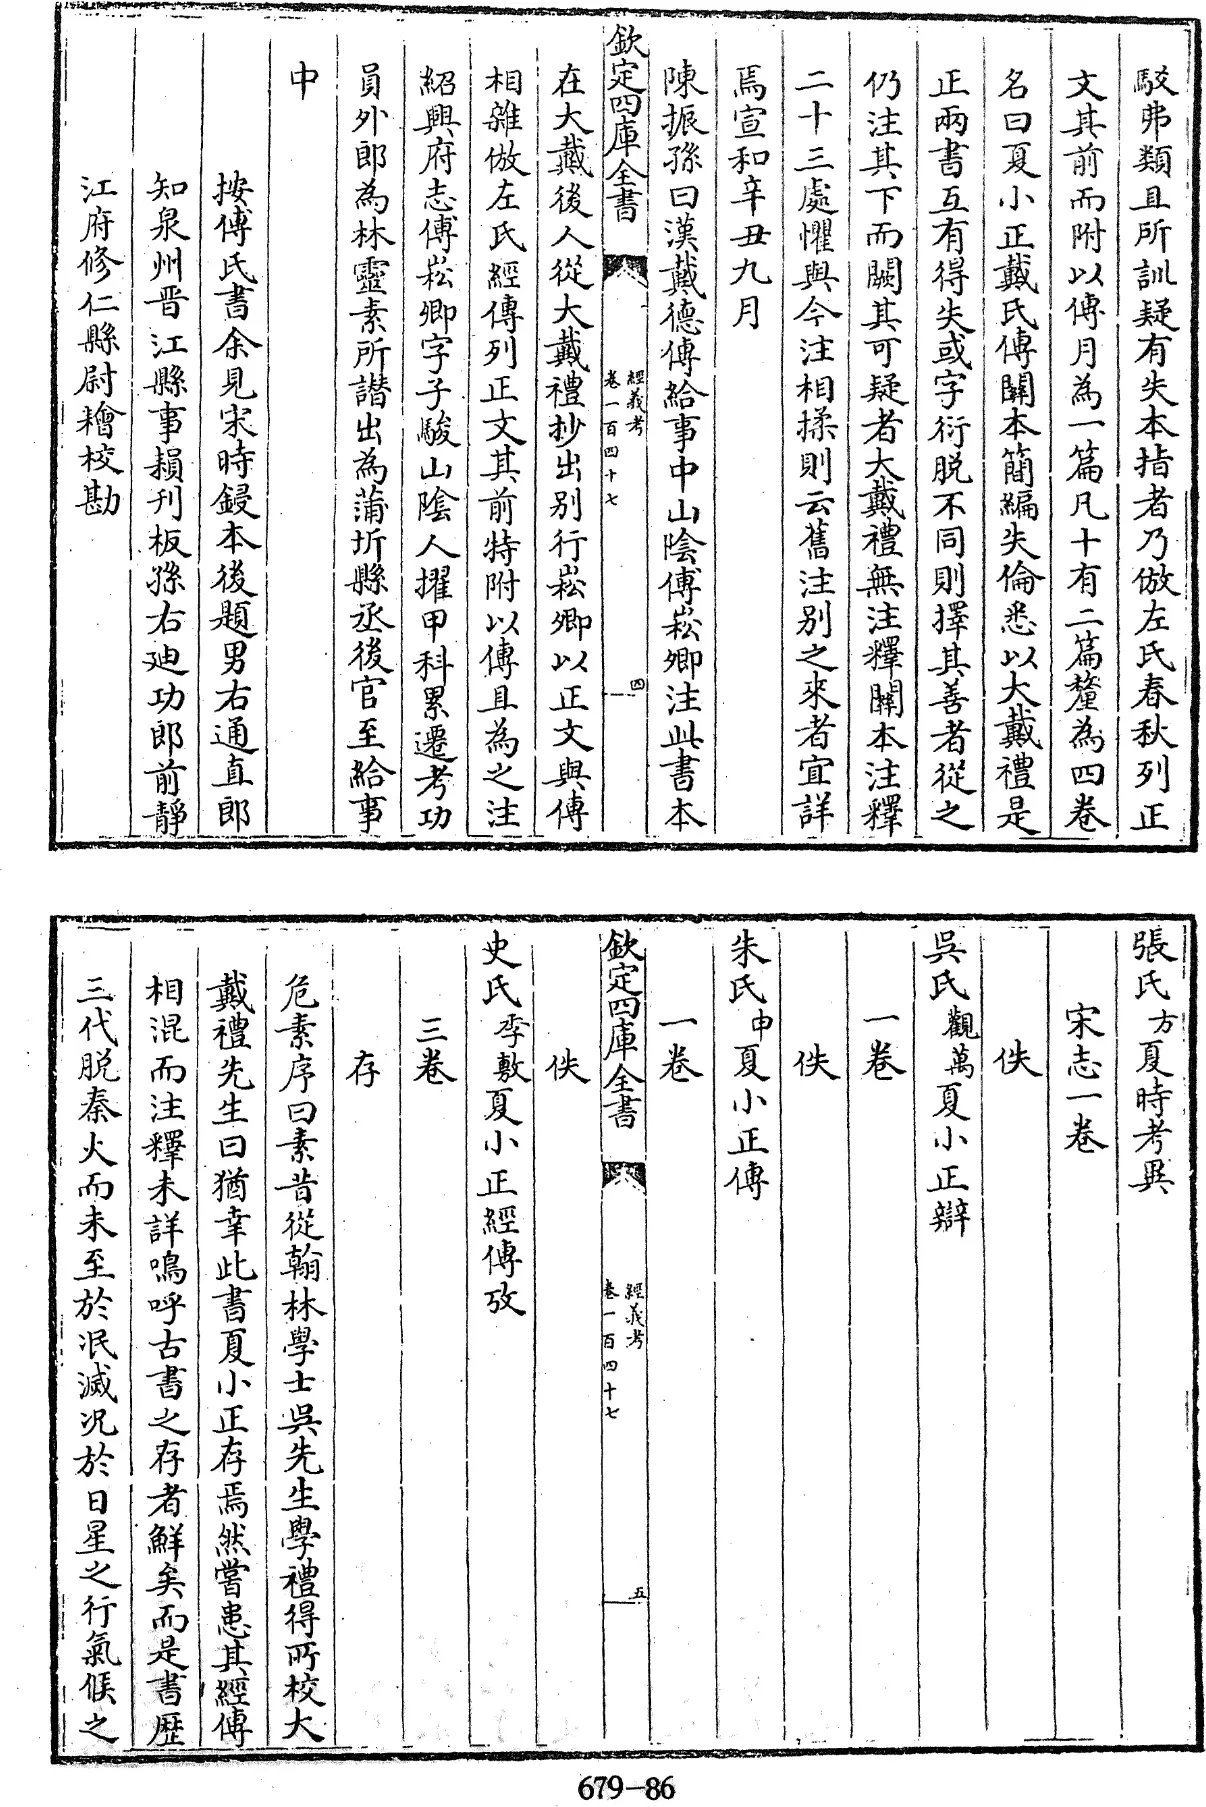 駁弗類且所訓疑有失本指者乃倣左氏春秋列正
文其前而附以傳月為一篇凡十有二篇釐為四卷
名曰夏小正戴氏傳關本簡編失倫悉以大戴禮是
正兩書互有得失或字衍脱不同則擇其善者從之
仍注其下而闕其可疑者大戴禮無注釋關本注釋
二十三處懼與今注相揉則云舊注别之來者宜詳
焉宣和辛丑九月
陳振孫曰漢戴德傳給事中山隂傅崧卿注此書本
欽定四庫全書
經義考
卷一百四十七
四
在大戴後人從大戴禮抄出别行崧卿以正文與傳
相雜倣左氏經傳列正文其前特附以傳且為之注
紹興府志傅崧卿字子駿山隂人擢甲科累遷考功
員外郎為林靈素所譖出為蒲圻縣丞後官至給事
中
按傅氏書余見宋時鋟本後題男右通直郎
知泉州晋江縣事頛刋板孫右廸功郎前靜
江府修仁縣尉䅲校勘
張氏方夏時考異
宋志一卷
佚
吳氏觀萬夏小正辯
一卷
佚
朱氏申夏小正傳
一卷
欽定四庫全書
經義考
卷一百四十七
五
佚
史氏季敷夏小正經傳攷
三卷
存
危素序曰素昔從翰林學士吳先生學禮得所校大
戴禮先生曰猶幸此書夏小正存焉然嘗患其經傳
相混而注釋未詳嗚呼古書之存者鮮矣而是書歴
三代脱秦火而未至於泯滅况於日星之行氣候之
679-86